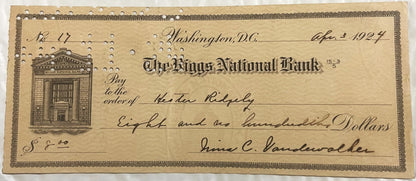 No. 17 Washington, D.C. Apr. 3 1924
The Riggs National Bank 15-3
Pay to the order of Hester Ridgely
Eight and no hundredths Dollars
$ 8.00 Nina C. Vandewalker